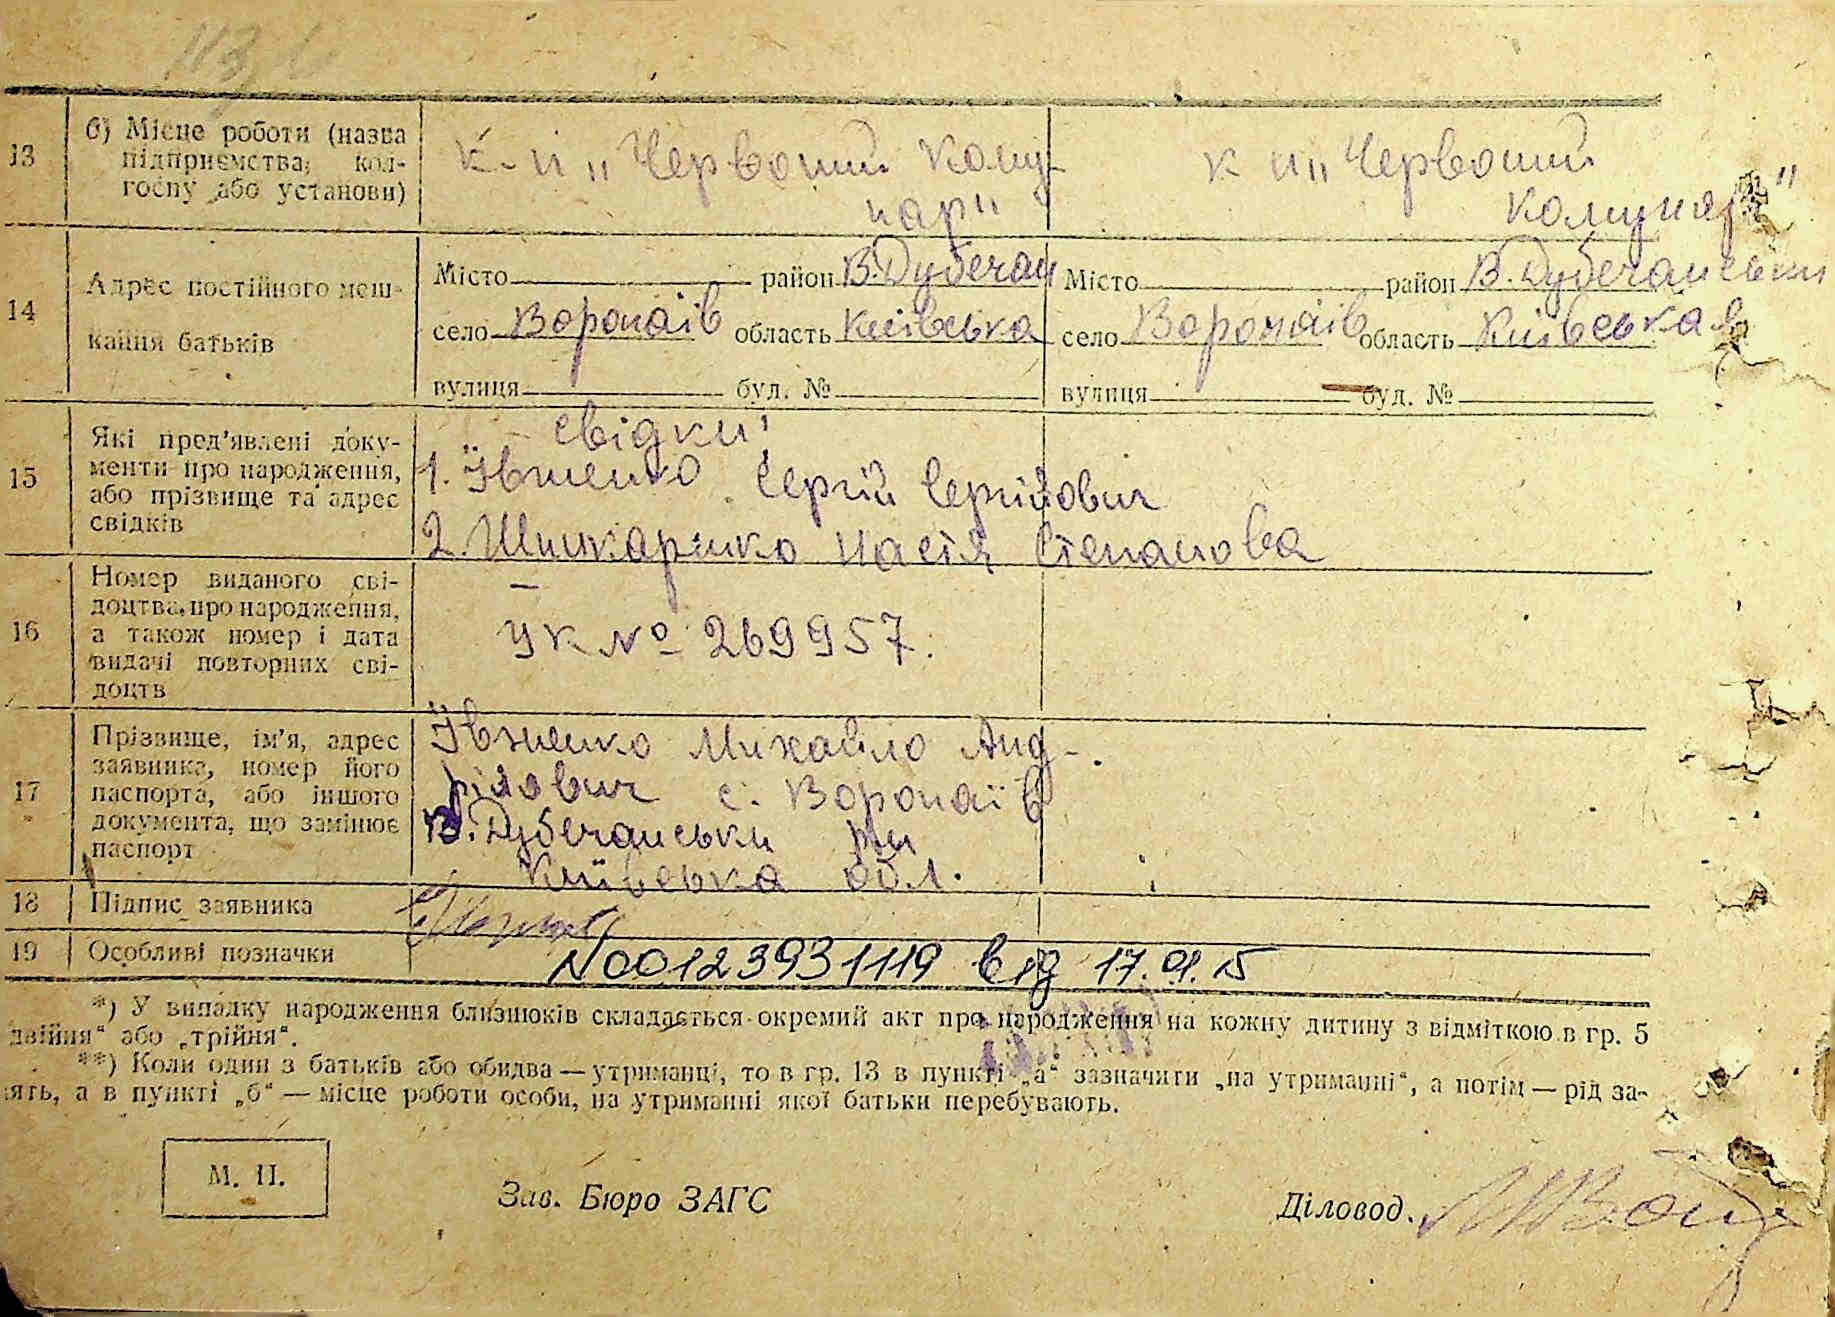 13 б) Місце роботи (назва підприємства, колгоспу або установи)
к-п „Червоний Кому-
нар"
к п „Червоний
Комунар"
14 Адрес постійного меш-
кання батьків
Місто район В.Дубечан
село Воропаїв область Київська
вулиця буд. №
Місто район В.Дубечанськи
село Воропаїв область Київська
вулиця буд. №
15 Які пред'явлені доку-
менти про народження,
або прізвище та адрес
свідків
свідки:
1. Ївженко Сергій Сергійович
2. Шишкаренко Настя Степанова
16 Номер виданого сві-
доцтва про народження,
а також номер і дата
видачі повторних сві-
доцтв
УК № 269957.
17 Прізвище, ім'я, адрес
заявника, номер його
паспорта, або іншого
документа, що замінює
паспорт
Ївженко Михайло Анд-
рійович с. Воропаїв
В.Дубечанськи р-н
Київська обл.
18 Підпис заявника
19 Особливі позначки
N00123931119 від 17.01.15
*) У випадку народження близнюків складається окремий акт про народження на кожну дитину з відміткою в гр. 5
двійня" або „трійня".
**) Коли один з батьків або обидва — утриманці, то в гр. 13 в пункті „а" зазначити „на утриманні", а потім — рід за-
нять, а в пункті „б" — місце роботи особи, на утриманні якої батьки перебувають.
М. П.
Зав. Бюро ЗАГС
Діловод.